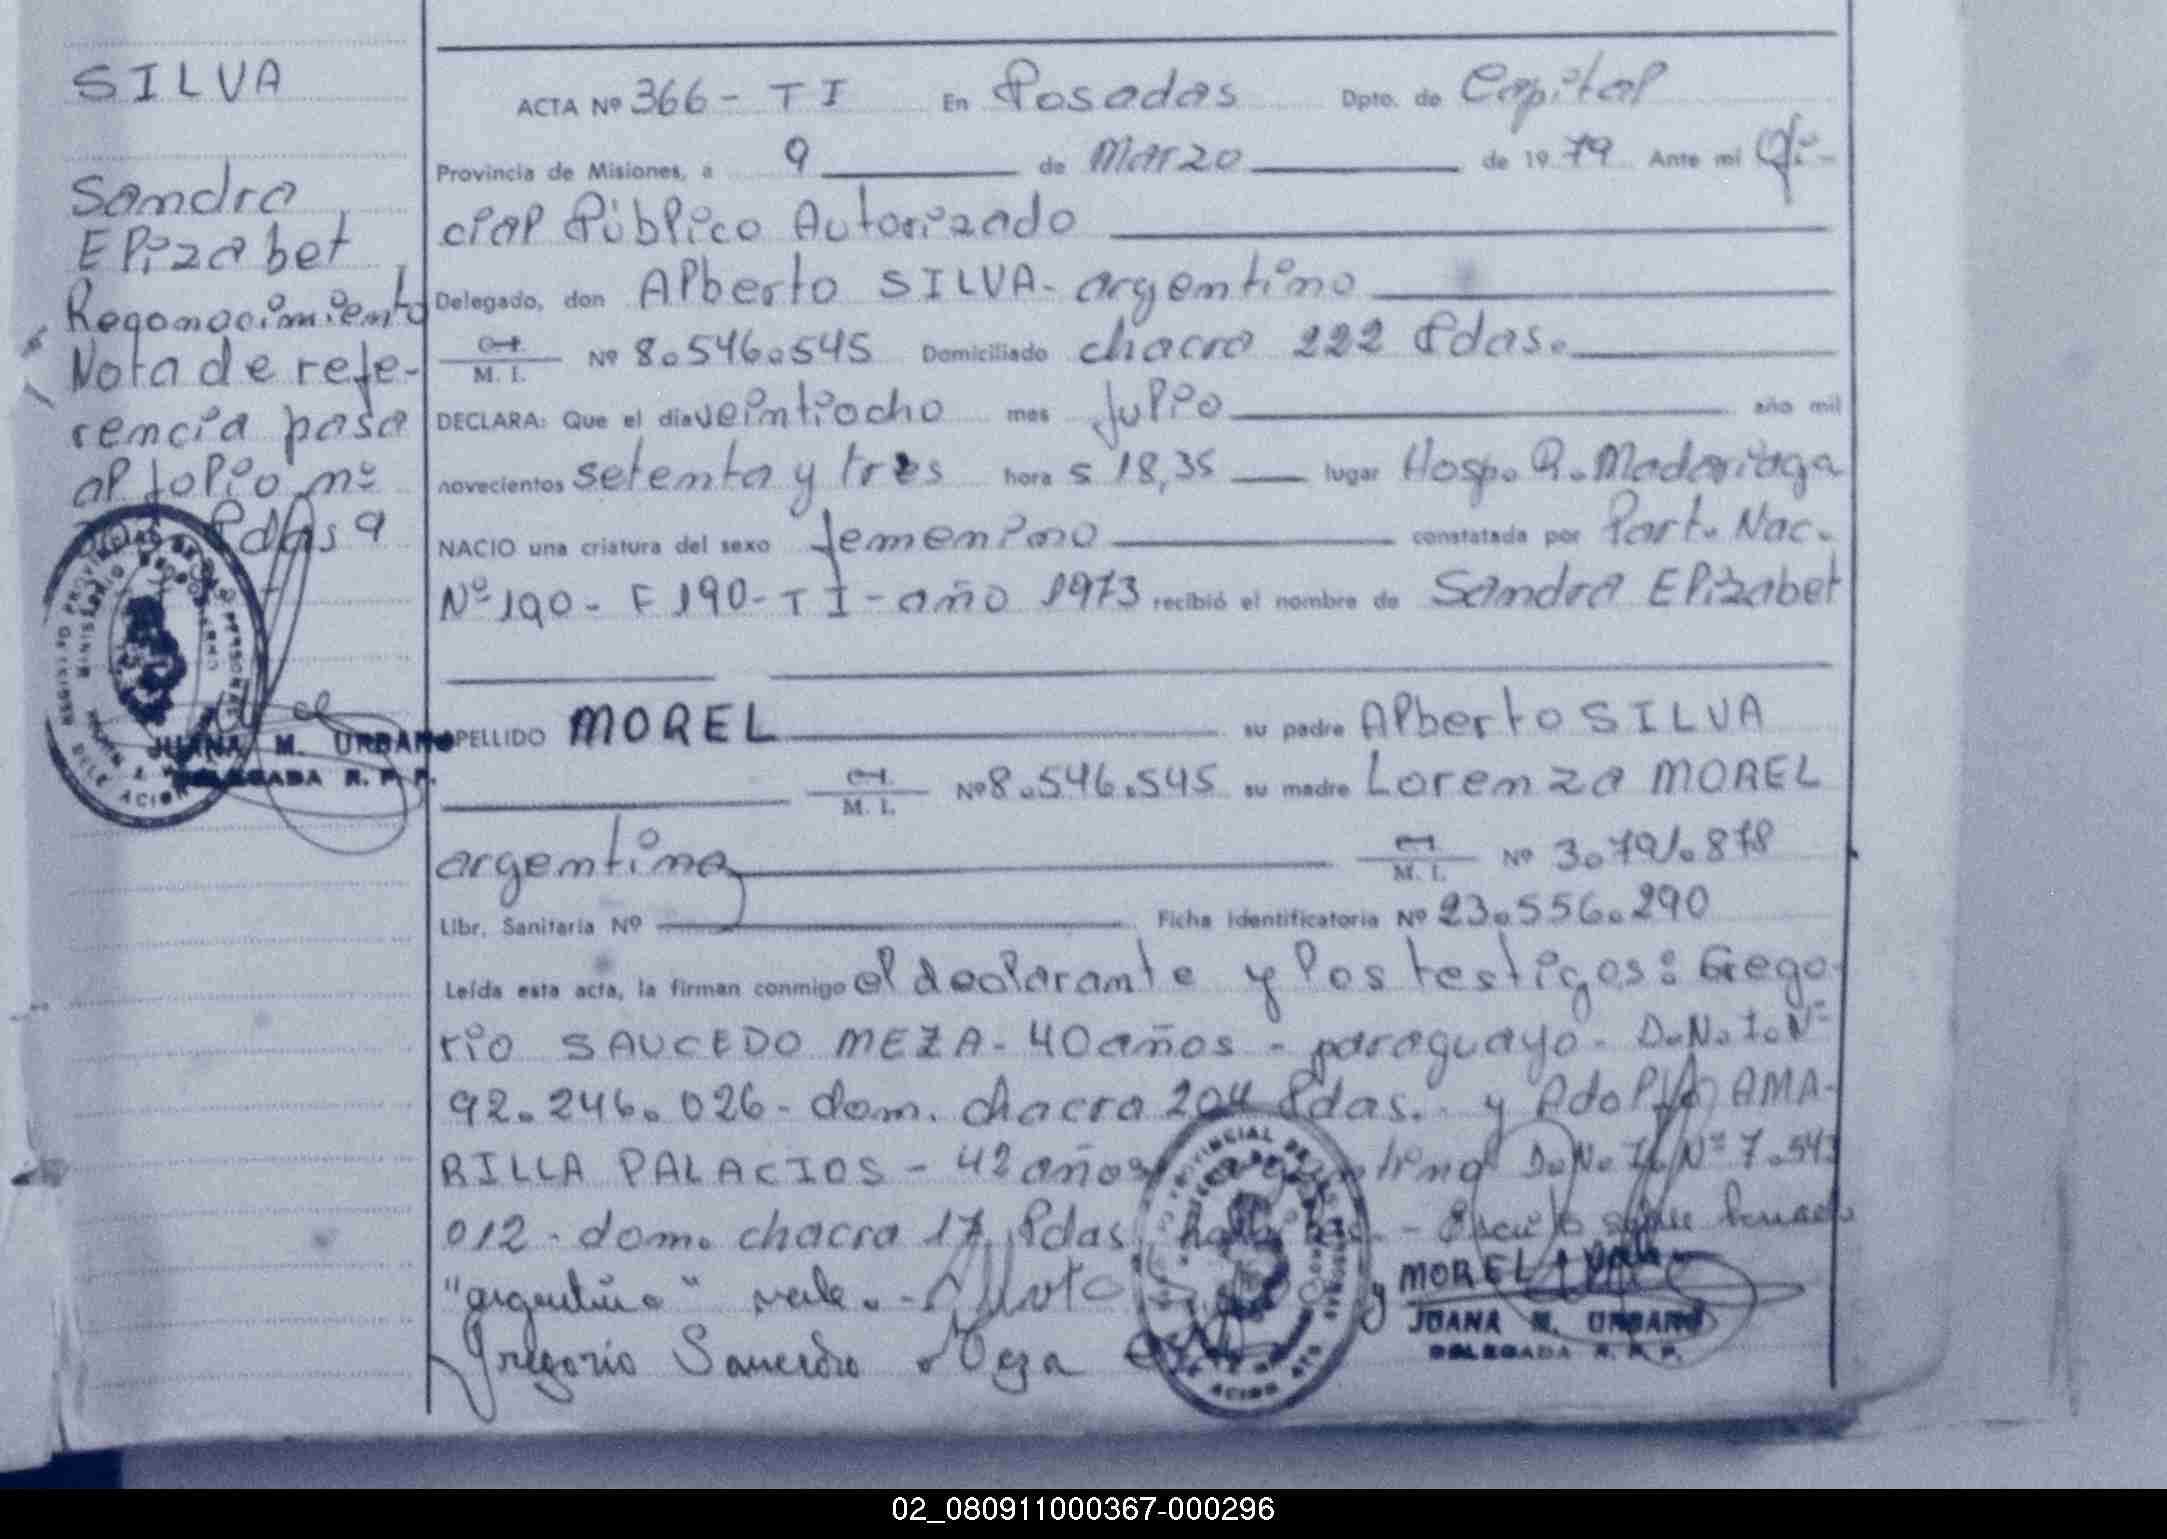 SILVA
Sandra
Elizabet
Reconocimiento
Nota de refe-
rencia pasa
al folio nº
Pdas 9
JUANA M. URBANO
DELEGADA R. P. P.
ACTA Nº 366 - T I En Posadas Dpto. de Capital
Provincia de Misiones, a 9 de Marzo de 1979 Ante mi Ofi-
cial Público Autorizado
Delegado, don Alberto SILVA - argentino
C.I. M. I. Nº 8.546.545 Domiciliado chacra 222 Pdas.
DECLARA: Que el día veintiocho mes Julio año mil
novecientos setenta y tres hora s 18,35 lugar Hosp. R. Madariaga
NACIO una criatura del sexo femenino constatada por Part. Nac.
Nº 190 - F 190 - T I - año 1973 recibió el nombre de Sandra Elizabet
APELLIDO MOREL su padre Alberto SILVA
C.I. M. I. Nº 8.546.545 su madre Lorenza MOREL
argentina C.I. M. I. Nº 3.791.878
Libr. Sanitaria Nº Ficha Identificatoria Nº 23.556.290
Leída esta acta, la firman conmigo el declarante y los testigos: Grego-
rio SAUCEDO MEZA - 40 años - paraguayo - D.N.I. Nº
92.246.026 - dom. chacra 204 Pdas. - y Adolfo AMA-
RILLA PALACIOS - 42 años D.N.I. Nº 7.543
012 - dom. chacra 17 Pdas
"argentino" vale. -
Gregorio Saucedo Meza
y MOREL vale
JUANA M. URBANO
DELEGADA R. P. P.
02_080911000367-000296